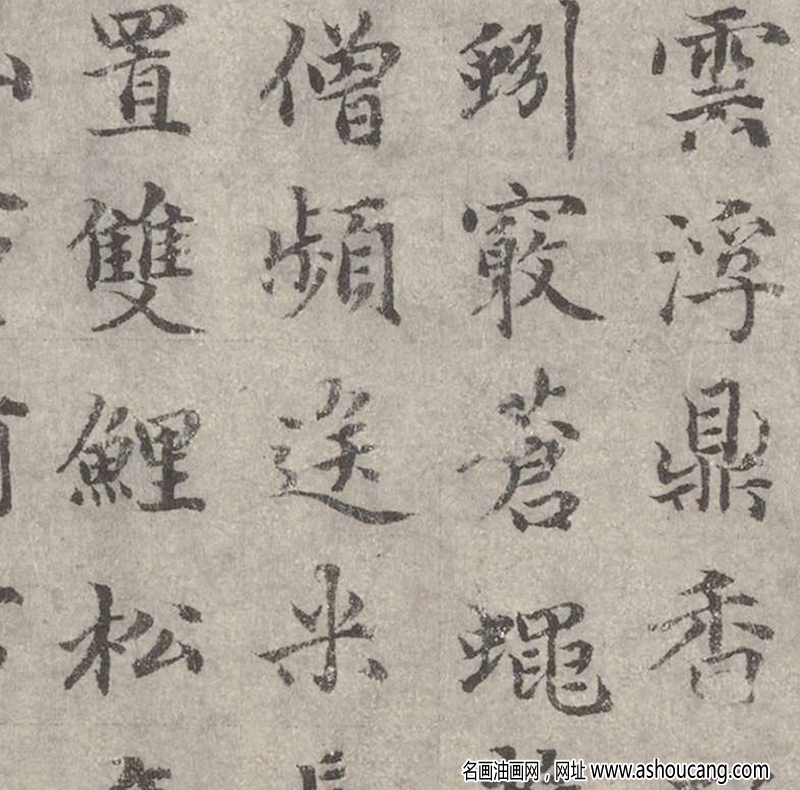 雲浮鼎香
蚓竅蒼蠅
僧頻送米
置雙鯉松
名画油画网，网址 www.ashoucang.com